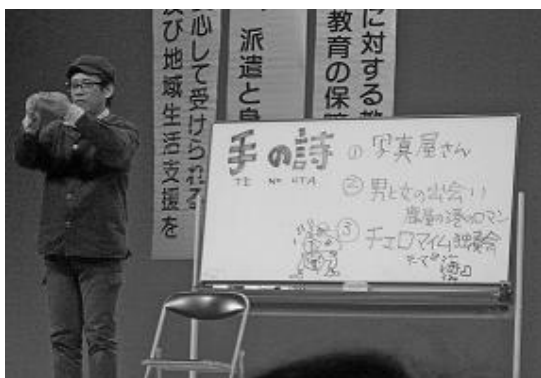 に対する教
教育の保障
派遣と身
心して受けられる
及び地域生活支援を
手の詩
TE NO UTA
① 写真屋さん
② 男と女の出会い
港のロマン
③ チェロマイム独奏会
テーマ